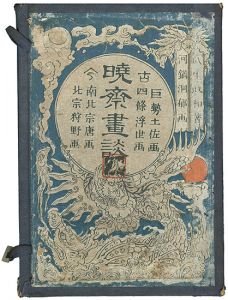 瓜生政和著
河鍋洞郁画
巨勢土佐画
古四條浮世画
曉齋畫談
今南北宗唐画
北宗狩野画